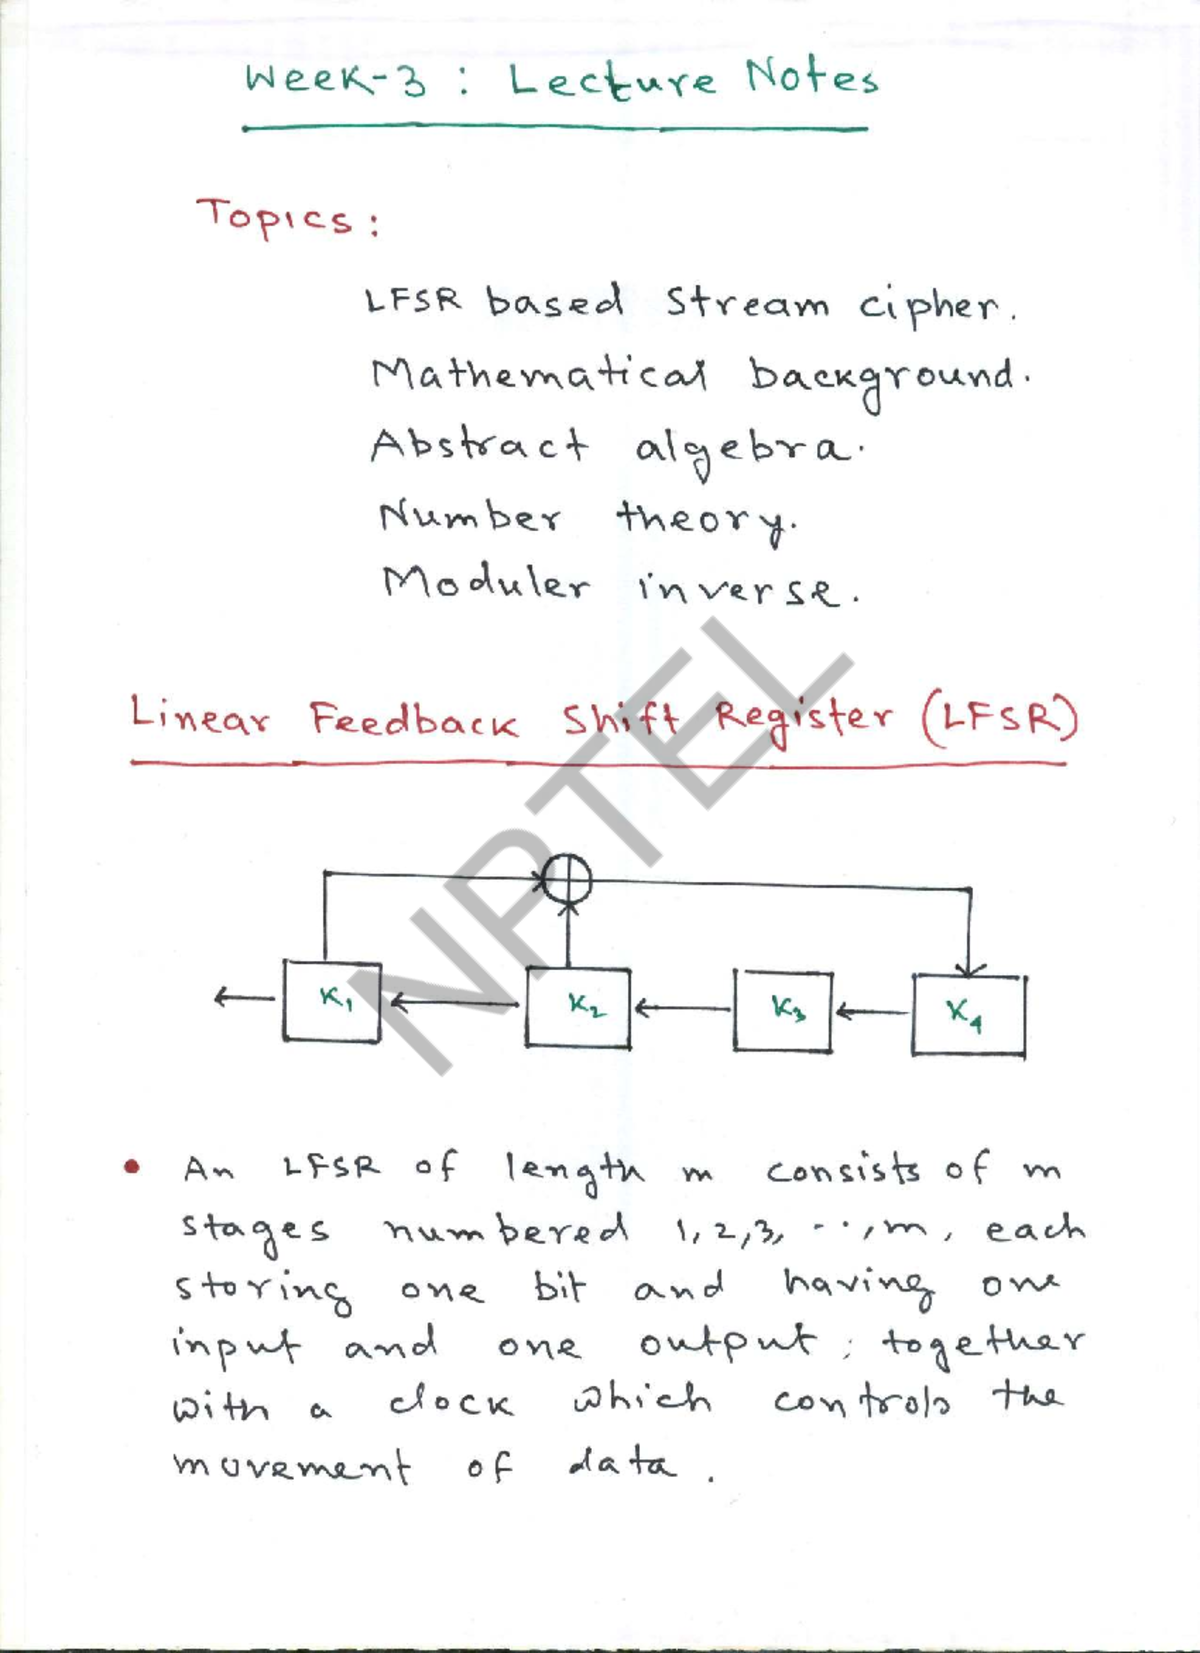 Week-3 : Lecture Notes
Topics :
LFSR based Stream cipher.
Mathematical background.
Abstract algebra.
Number theory.
Moduler inverse.
Linear Feedback Shift Register (LFSR)
K1 K2 K3 K4
• An LFSR of length m consists of m
stages numbered 1, 2, 3, ..., m, each
storing one bit and having one
input and one output; together
with a clock which controls the
movement of data.
NPTEL